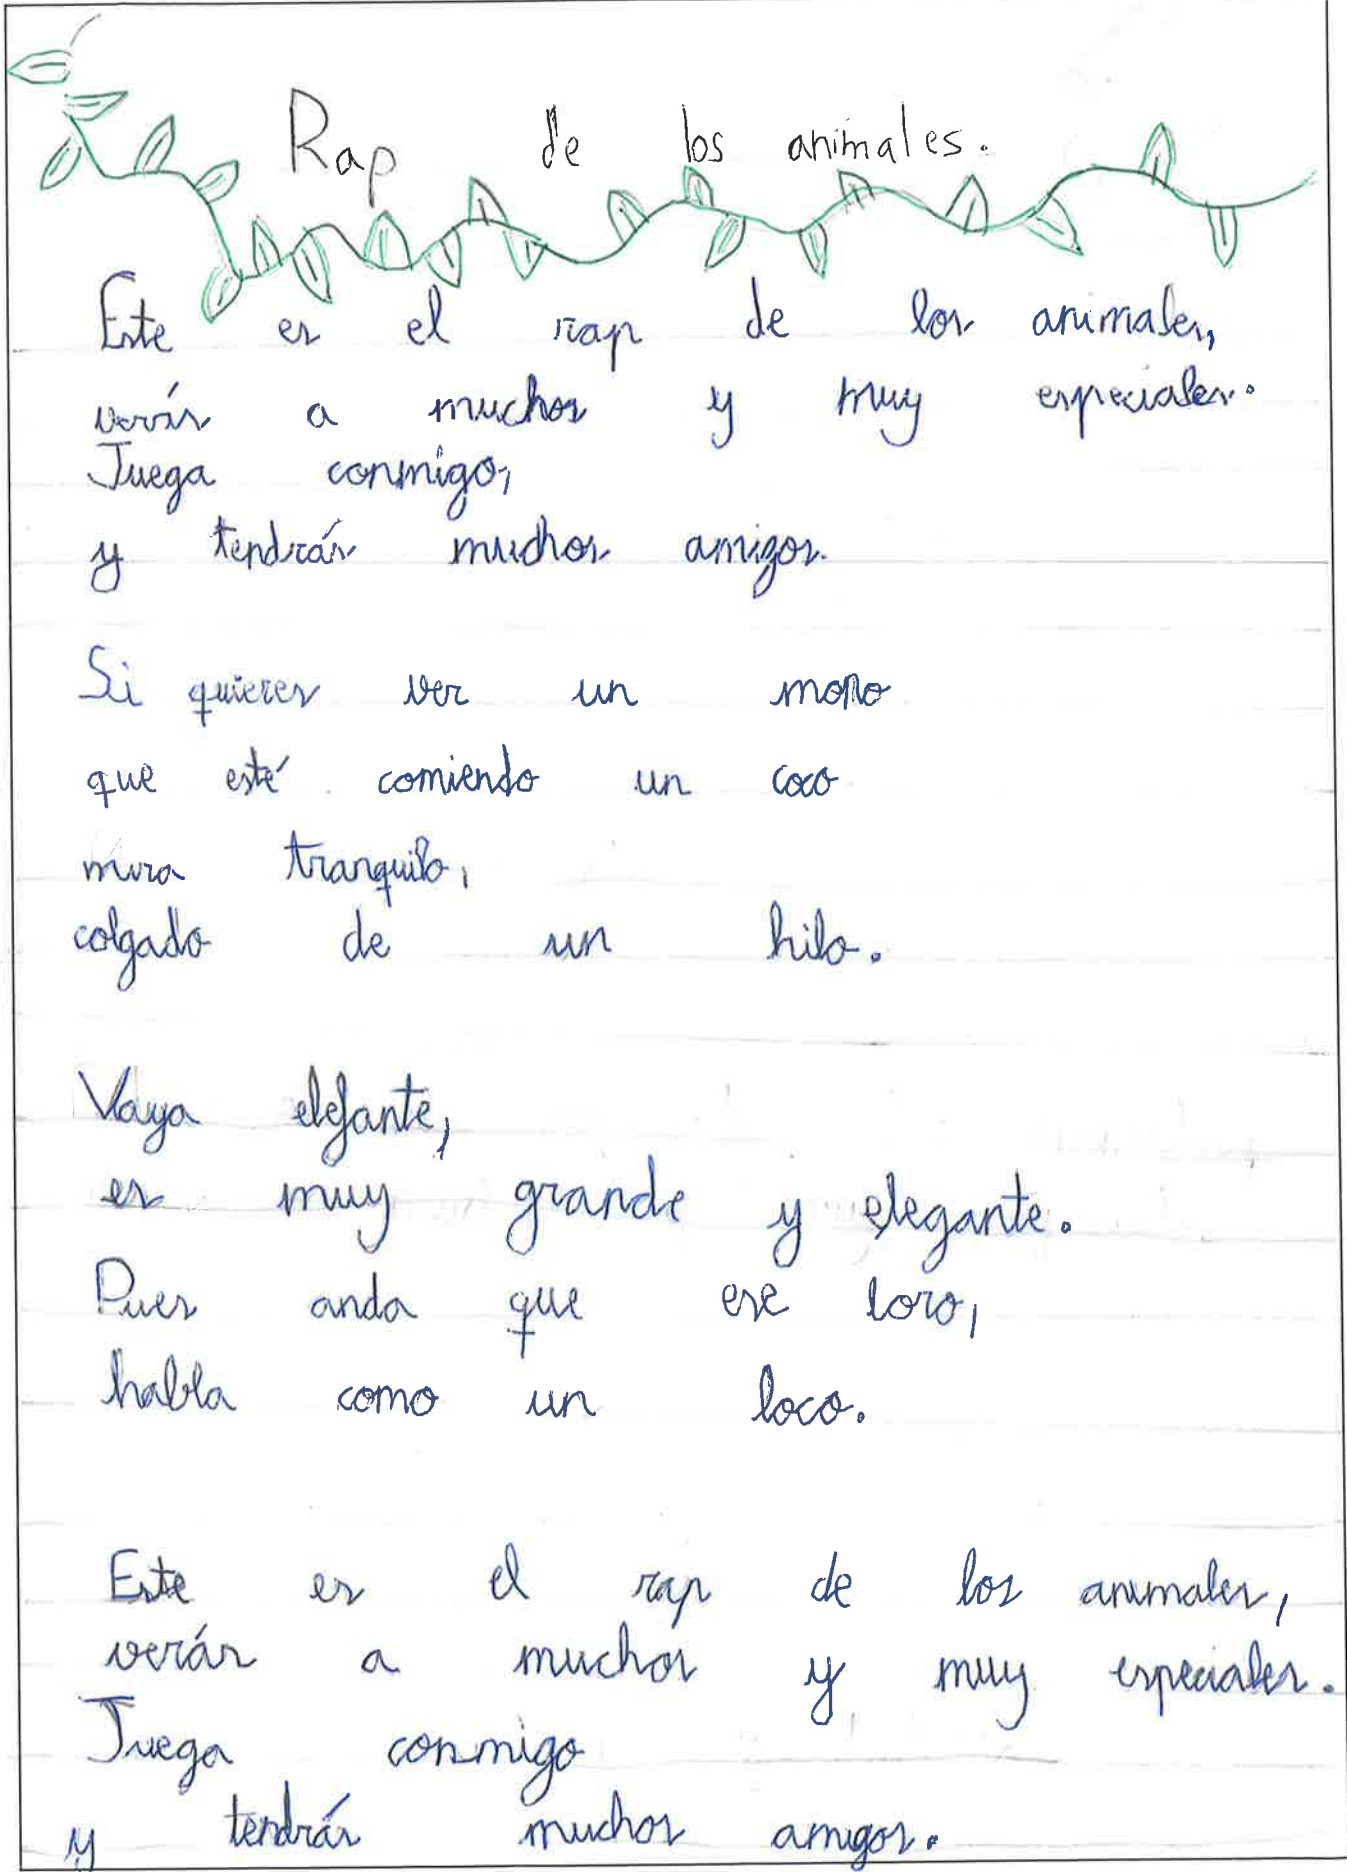 Rap de los animales.
Este es el rap de los animales,
verás a muchos y muy especiales.
Juega conmigo,
y tendrás muchos amigos.
Si quieres ver un mono
que esté comiendo un coco
mira tranquilo,
colgado de un hilo.
Vaya elefante,
es muy grande y elegante.
Pues anda que ese loro,
habla como un loco.
Este es el rap de los animales,
verás a muchos y muy especiales.
Juega conmigo
y tendrás muchos amigos.